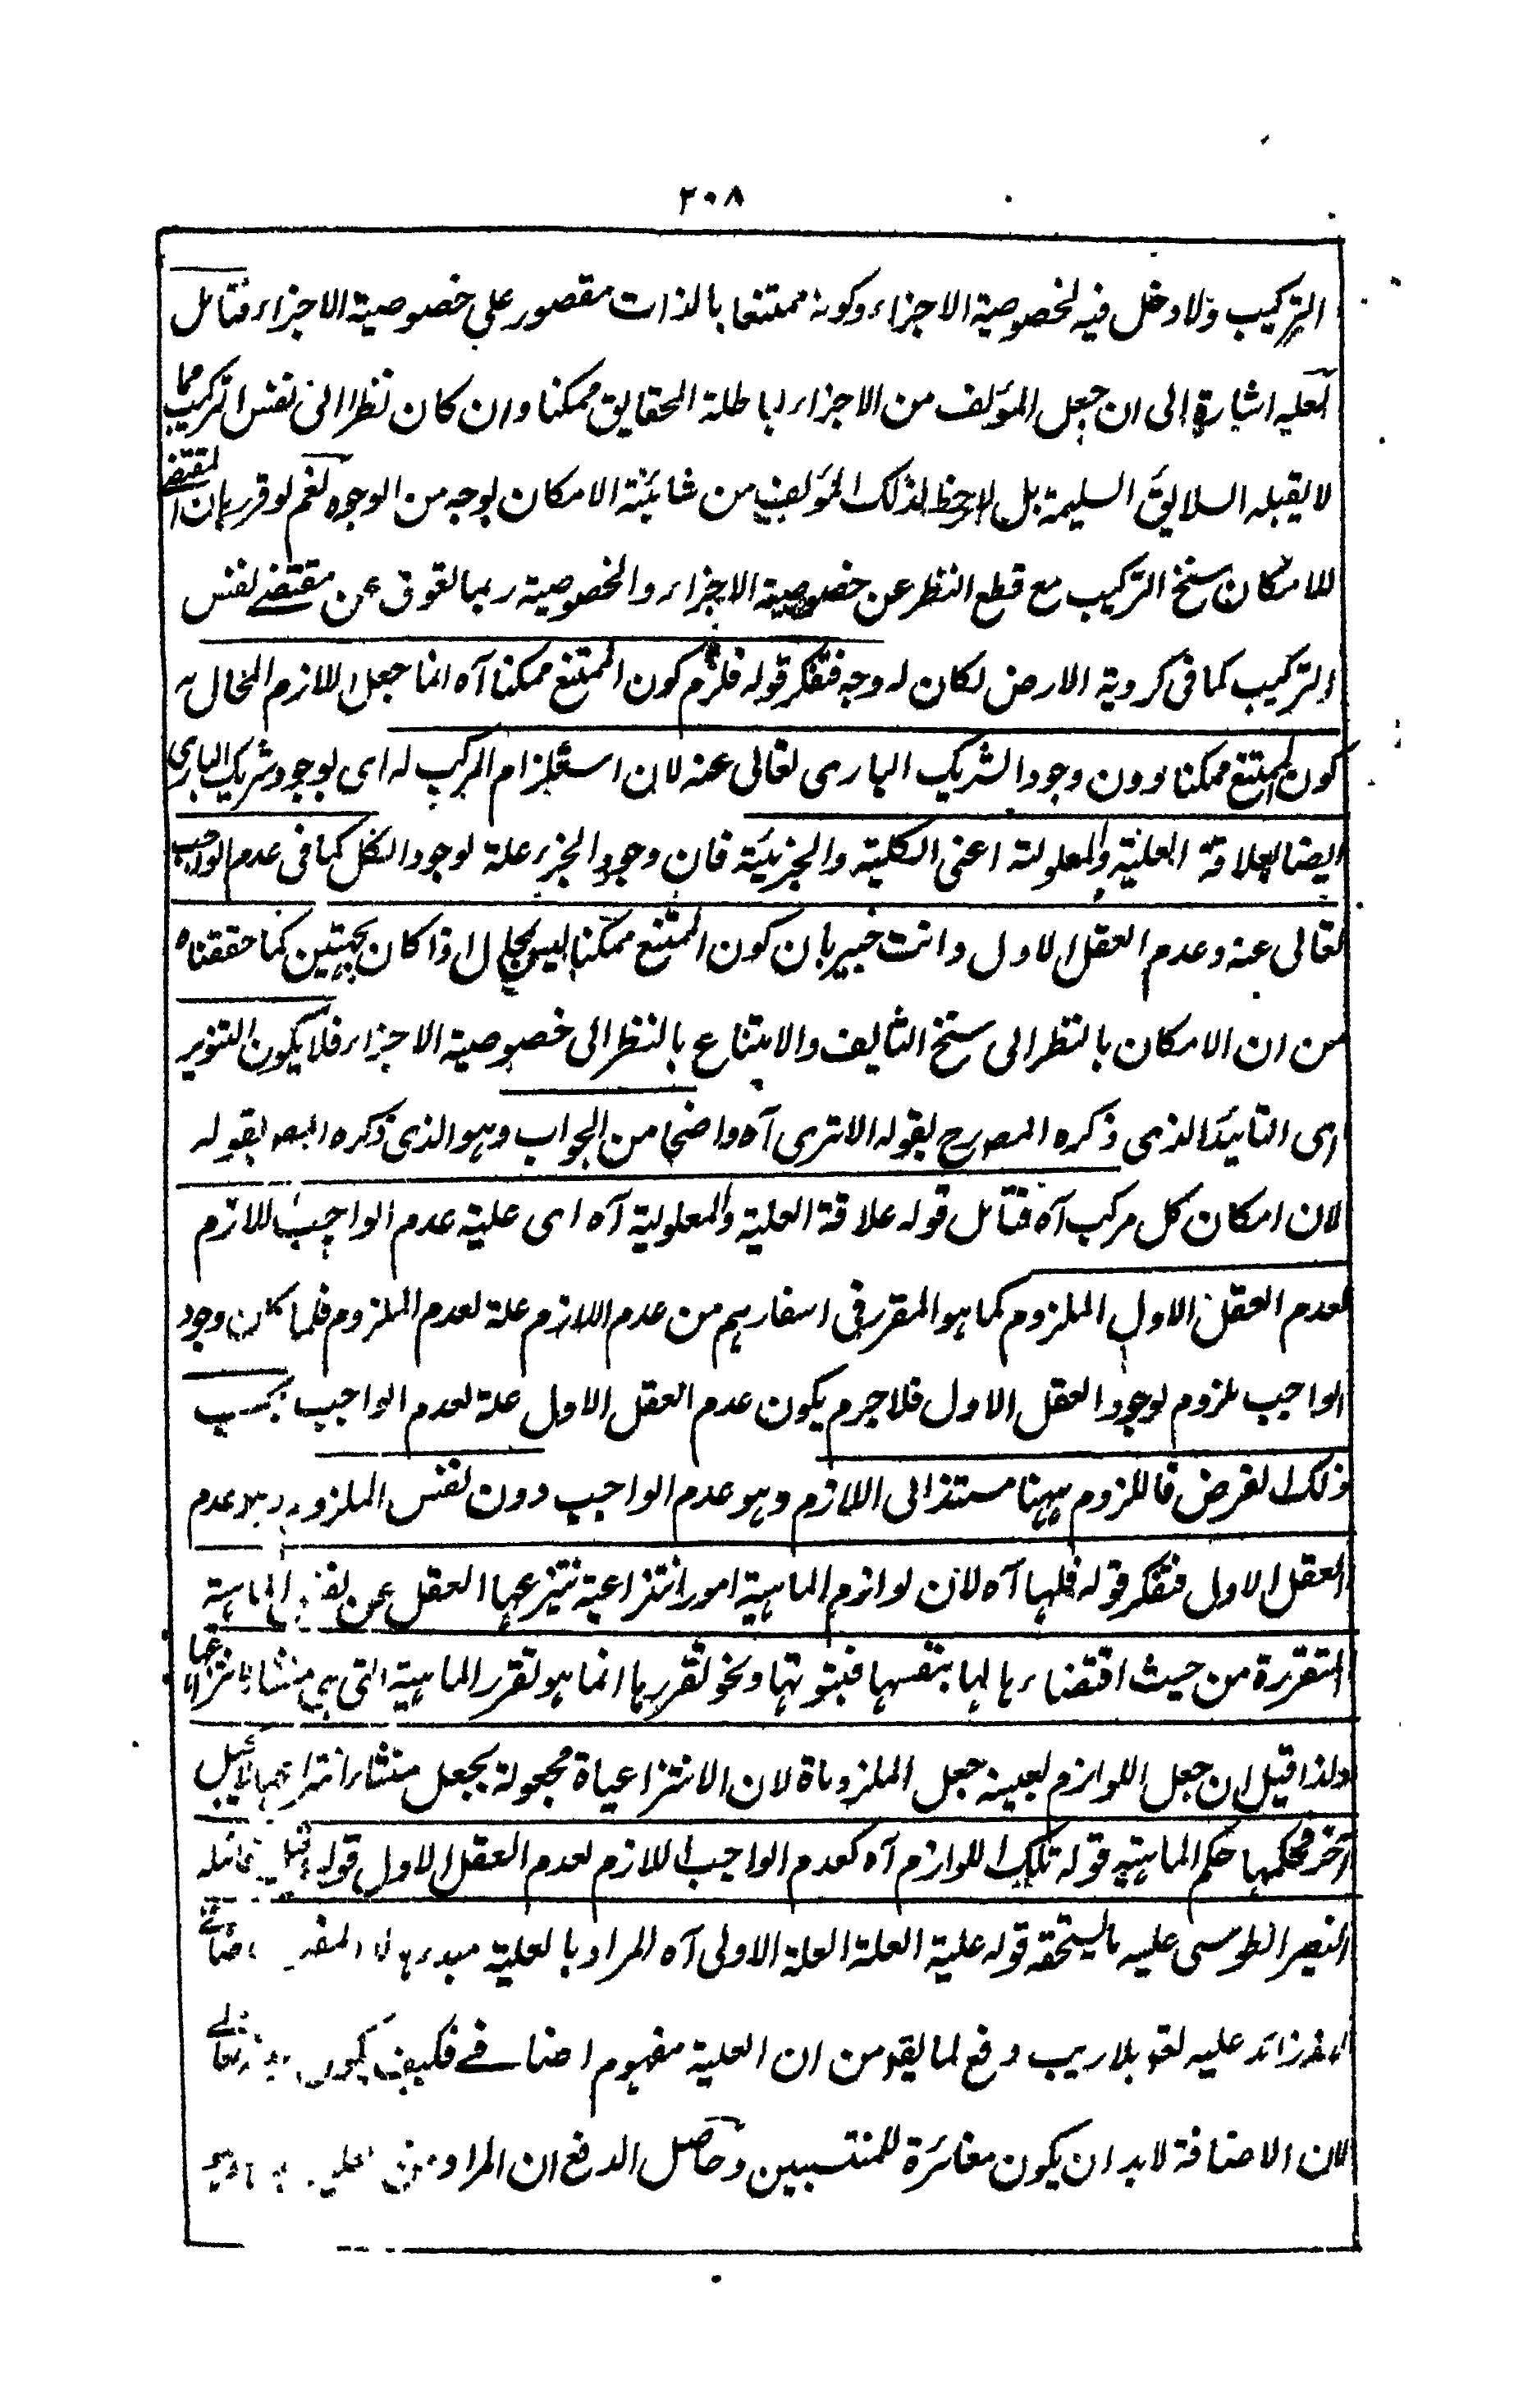 ٢٠٨
التركيب ولا دخل فيه لخصوصية الاجزاء وكونه ممتنعا بالذات مقصور على خصوصية الاجزاء فتامل
لعله اشارة الى ان جعل المؤلف من الاجزاء الباطلة الحقايق ممكنا وان كان نظرا الى نفس التركيب مما
لا يقبله السلايق السليمة بل لاحظ لذلك المؤلف من شائبة الامكان بوجه من الوجوه نعم لو قرر بان المقتضى
للامكان سنخ التركيب مع قطع النظر عن خصوصية الاجزاء والخصوصية ربما تعوق عن مقتضے نفس
التركيب كما فى كروية الارض لكان له وجه فتفكر قوله فلزم كون الممتنع ممكنا آه انما جعل اللازم المحال
كون الممتنع ممكنا دون وجود الشريك البارى تعالى عنه لان استلزام المركب له اى لوجود شريك البارى
ايضا لعلاقة العلية والمعلولية اعنى الكلية والجزئية فان وجود الجزء علة لوجود الكل كما فى عدم الواجب
تعالى عنه وعدم العقل الاول وانت خبير بان كون الممتنع ممكنا ليس بمحال اذا كان بجهتين كما حققناه
من ان الامكان بالنظر الى سنخ التاليف والامتناع بالنظر الى خصوصية الاجزاء فلا يكون التنوير
اى التائيد الذى ذكره المصرح بقوله الا ترى آه واضحا من الجواب وهو الذى ذكره المصـ بقوله
لان امكان كل مركب آه فتامل قوله علاقة العلية والمعلولية آه اى علية عدم الواجب اللازم
لعدم العقل الاول الملزوم كما هو المقرر فى اسفارهم من عدم اللازم علة لعدم الملزوم فلما كان وجود
الواجب ملزوم لوجود العقل الاول فلا جرم يكون عدم العقل الاول علة لعدم الواجب بحسب
ذلك الفرض فاللزوم ههنا مستند الى اللازم وهو عدم الواجب دون نفس الملزوم وهو عدم
العقل الاول فتفكر قوله فلها آه لان لوازم الماهية امور انتزاعية ينتزعها العقل عن نفس الماهية
المتقررة من حيث اقتضاءها لها بنفسها فثبوتها ونحو تقررها انما هو تقرر الماهية التى هى منشا انتزاعها
ولذا قيل ان جعل اللوازم بعينه جعل الملزومات لان الانتزاعيات مجعولة بجعل منشاء انتزاعها لا بجعل
آخر فحكمها حكم الماهية قوله تلك اللوازم آه كعدم الواجب اللازم لعدم العقل الاول قوله قيل قائله
النصير الطوسى عليه ما يستحقه قوله علية العلة العلة الاولى آه المراد بالعلية مبدءها لا المفهوم الاضافے
زائد عليه تعـ بلا ريب دفع لما يقـ من ان العلية مفهوم اضافے فكيف يكون تعالے
لان الاضافة لابد ان يكون مغائرة للمنتسبين وحاصل الدفع ان المراد من